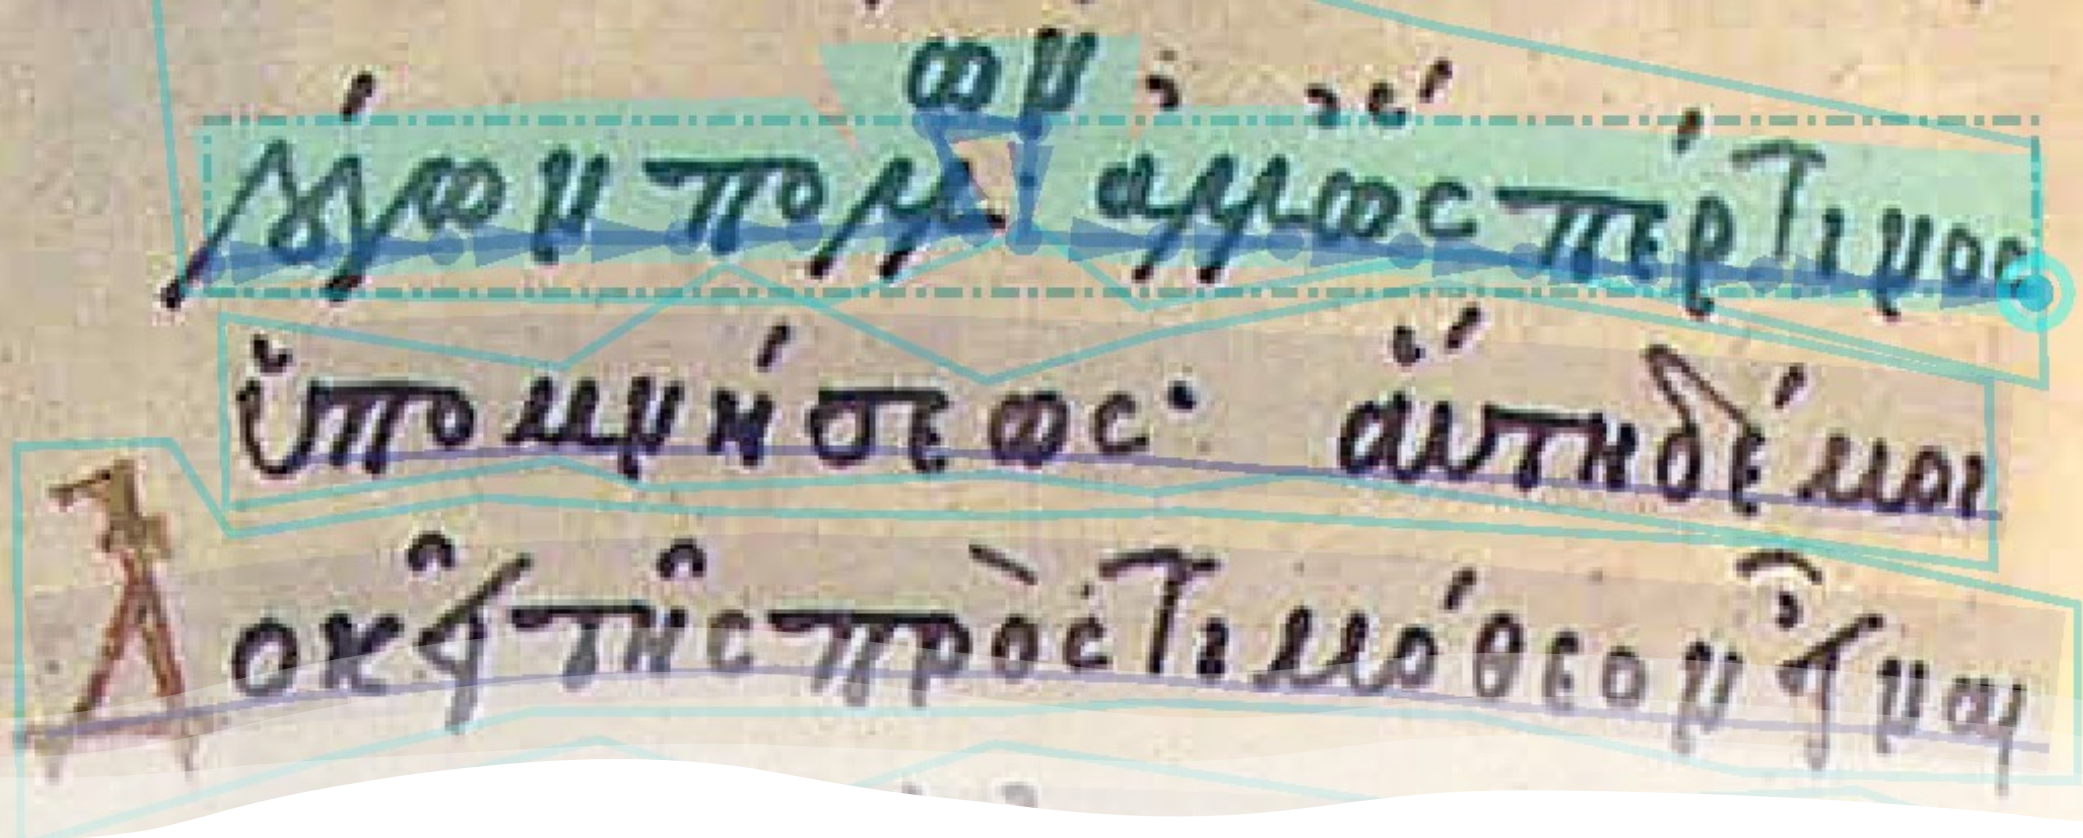 λόγων πολλων ἀλλ ὥσπερ τινος
ὑπομνήσεως· αὕτη δέ μοι
Δοκεῖ τῆς πρὸς Τιμόθεον εἶναι